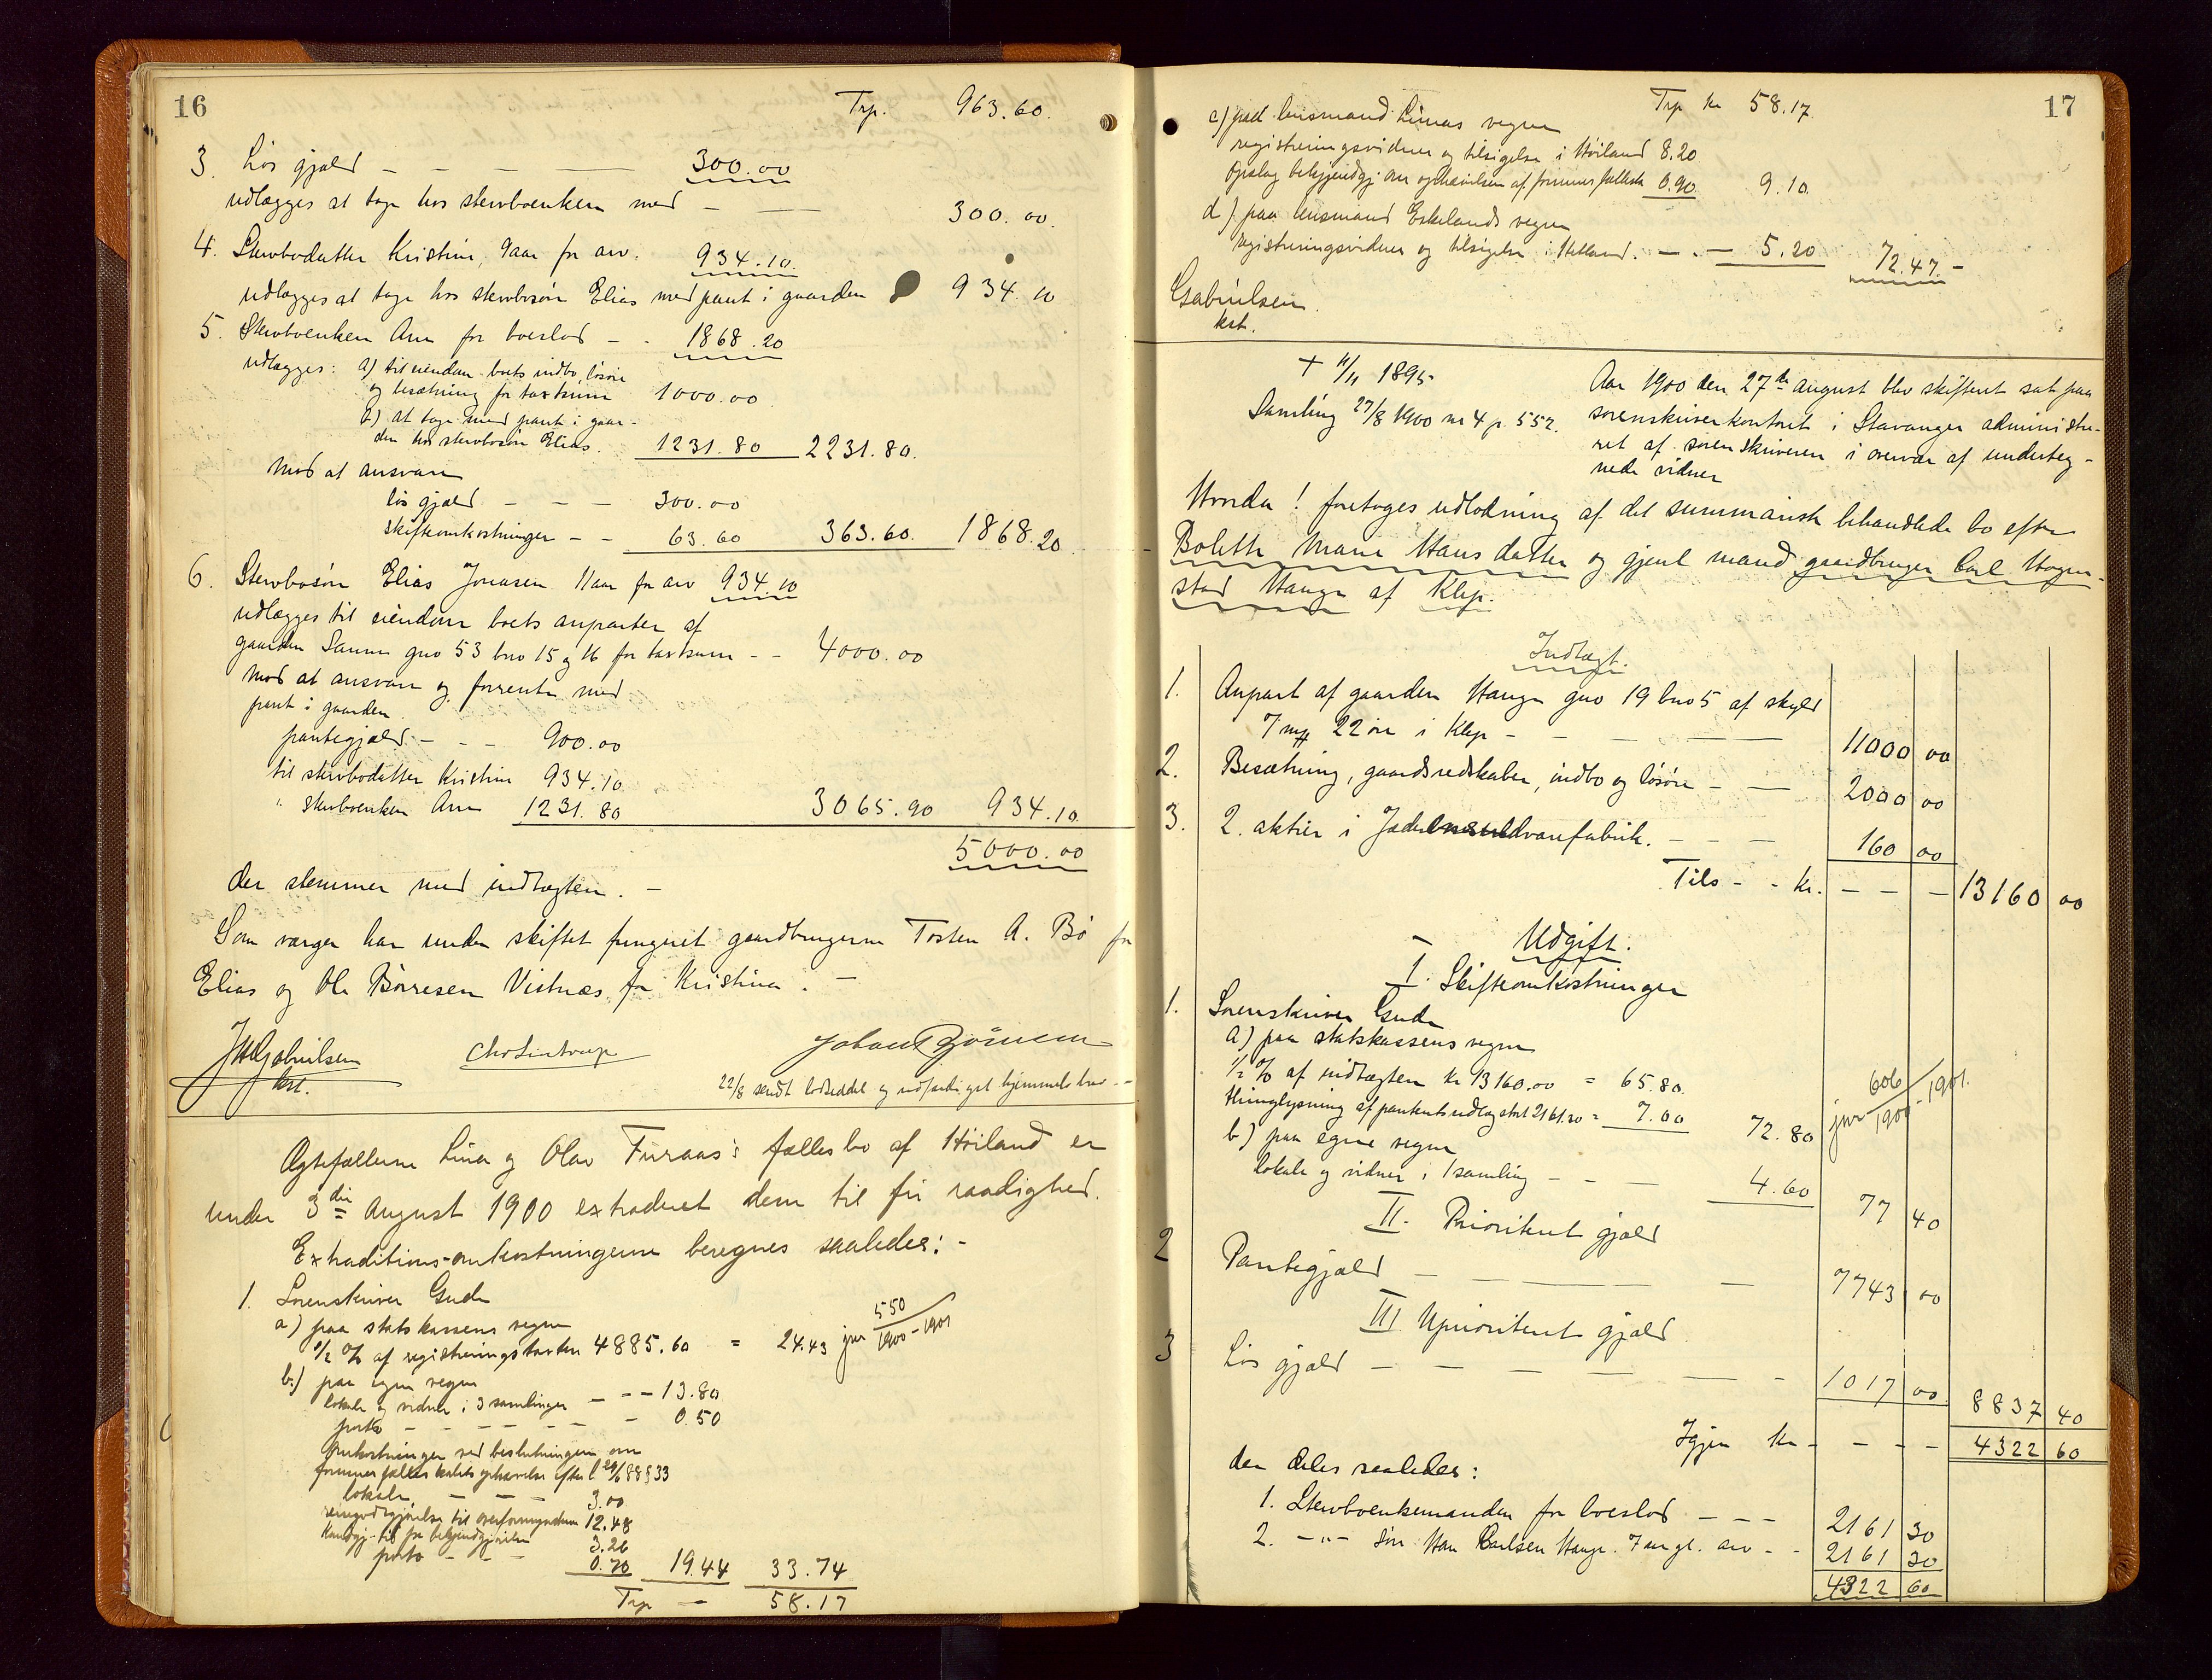 16
Trp. 963.60.
3. Løs gjæld - - - 300.00
udlægges at tage hos stervboenken med - 300.00.
4. Stervbodatter Kristine, 9 aar for arv. 934.10.
udlægges at tage hos stervbosøn Elias med pant i gaarden 934.10
5. Stervboenken Ane for boeslod - - 1868.20
udlægges: a) til eiendom boets indbo, løsøre
og besætning for taxtsum 1000.00
b) at tage med pant i gaar-
den hos stervbosøn Elias. 1231.80 2231.80.
Mod at ansvare
løs gjæld - - - 300.00
skifteomkostninger - - 63.60 363.60. 1868.20
6. Stervbosøn Elias Jonasen 11 aar for arv 934.10
udlægges til eiendom boets anparter af
gaarden Sunne gno 53 bno 15 og 16 for taxtsum - - 4000.00
Mod at ansvare og forrente med
pant i gaarden
pantegjæld - - - 900.00
til stervbodatter Kristine 934.10
" stervboenken Ane 1231.80 3065.90 934.10
5000.00
der stemmer med indtægten. -
Som værger har under skiftet fungeret gaardbrugerne Torsten A. Bø for
Elias og Ole Børresen Vistnæs for Kristine. -
JHGabrielsen
kst.
Chr Lintrup
22/8 sendt lodseddel og udfærdiget hjemmelsbrev -
Ægtefællerne Lina og Olav Furaas's fællesbo af Høiland er
under 3die August 1900 extraderet dem til fri raadighed.
Extraditions-omkostningerne beregnes saaledes: -
1. Sorenskriver Gude
a) paa statskassens vegne
1/2 % af registreringstaxten 4885.60 = 24.43 jnr 550/1900-1901
b.) paa egne vegne
lokale og vidner i 3 samlinger - - - 13.80
porto - - - - - - 0.50
Omkostninger ved beslutningen om
formuesfællesskabets ophævelse efter l 29/6 88 § 33
lokale - - - 3.00
reisegodtgjørelse til overformynderen 12.48
Kundgj. til for bekjendtgjørelsen 3.26
porto - - - 0.70 19.44 33.74
Trp - 58.17
17
Trp kr 58.17.
c) paa lensmand Limas vegne
registreringsvidner og tilsigelse i Høiland 8.20
Opslag bekjendtgj. om ophævelsen af formuesfællesk 0.90 9.10.
d) paa lensmand Eskelands vegne
registreringsvidner og tilsigelse i Hetland. - - 5.20 72.47. -
Gabrielsen.
kst.
+ 11/11 1895
Samling 27/8 1900 nr 4 p 552.
Aar 1900 den 27de august blev skifteret sat paa
sorenskriverkontoret i Stavanger administre-
ret af sorenskriveren i overvær af underteg-
nede vidner
Hvorda! foretoges udlodning af det summarisk behandlede bo efter
Bolette Marie Hansdatter og gjenl mand gaardbruger Carl Hogn-
stad Hauge af Klep.
Indtægt.
1. Anpart af gaarden Hauge gno 19 bno 5 af skyld
7 mk 22 øre i Klep - - - 11000 00
2. Besætning, gaardsredskaber, indbo og løsøre - - 2000 00
3. 2 aktier i Jæderens uldvarefabrik. - - - 160 00
Tils - - kr. - - - 13160 00
Udgift.
I. Skifteomkostninger
1. Sorenskriver Gude
a) paa statskassens vegne
1/2 % af indtægten kr 13160.00 = 65.80.
thinglysning af panteudlæg stort 2161.30 = 7.00 72.80 jnr 606/1900-1901.
b) paa egne vegne
lokale og vidner i 1 samling - - - 4.60 77 40
II. Prioritert gjæld
2 Pantegjæld - - - 7743 00
III Uprioritert gjæld
3 Løs gjæld - - - - - - 1017 00 8837 40
Igjen kr - - - - 4322 60
der deles saaledes:
1. Stervboenkemanden for boeslod - - - 2161 30
2. -"- søn Hans Carlsen Hauge. 7 aar gl. arv - - 2161 30
4322 60